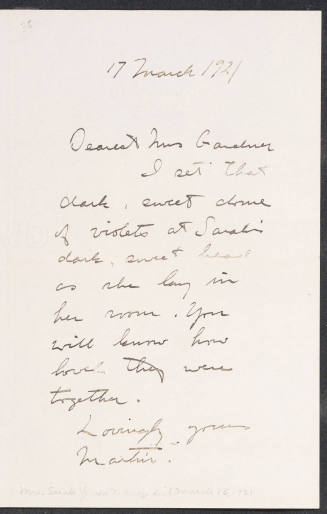 17 March 1921
Dearest Mrs Gardner
I set that
dark, sweet dome
of violets at Sarah's
dark, sweet head
as she lay in
her room. You
will know how
lovely they were
together.
Lovingly yours
Martin.
Mrs. Sarah died March 15, 1921